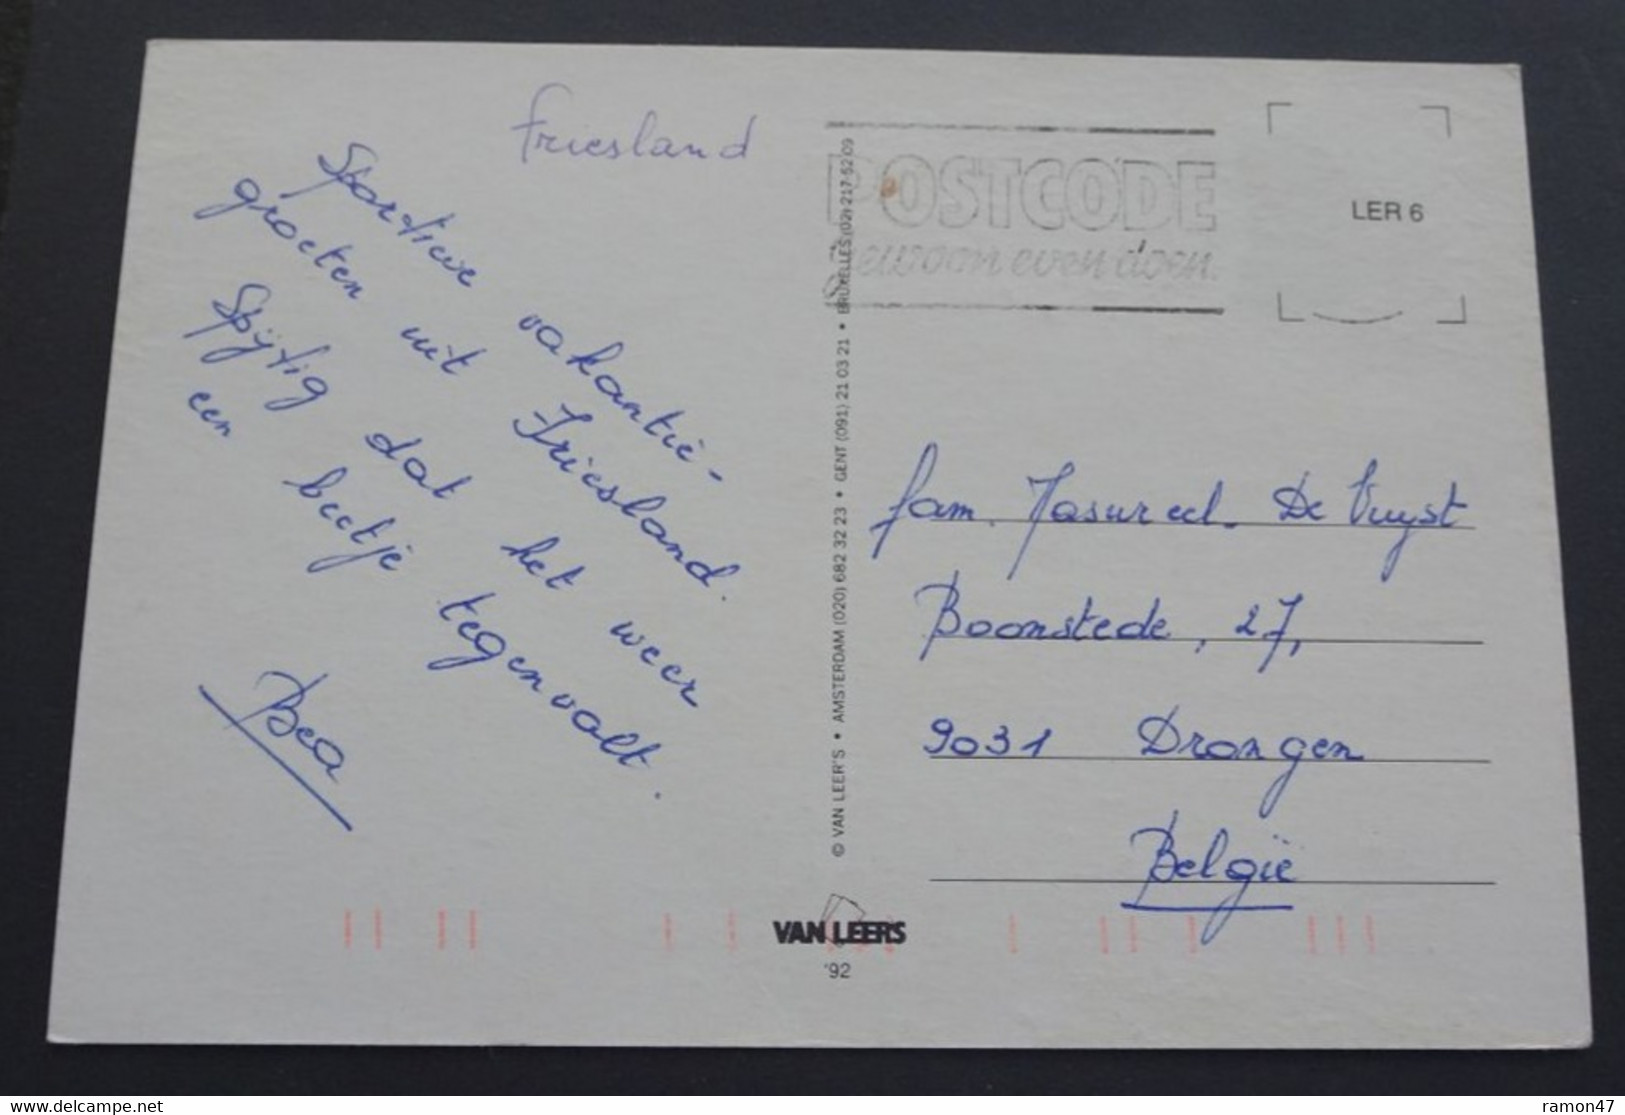 Friesland
Sportieve vakantie-
groeten uit Friesland.
Spijtig dat het weer
een beetje tegenvalt.
Bea
POSTCODE
gewoon even doen.
LER 6
© VAN LEER'S • AMSTERDAM (020) 682 32 23 • GENT (091) 21 03 21 • BRUXELLES (02) 217 52 09
fam. Masureel - De Vuyst
Boonstede, 27,
9031 Drongen
België
VAN LEER'S
'92
ramon47